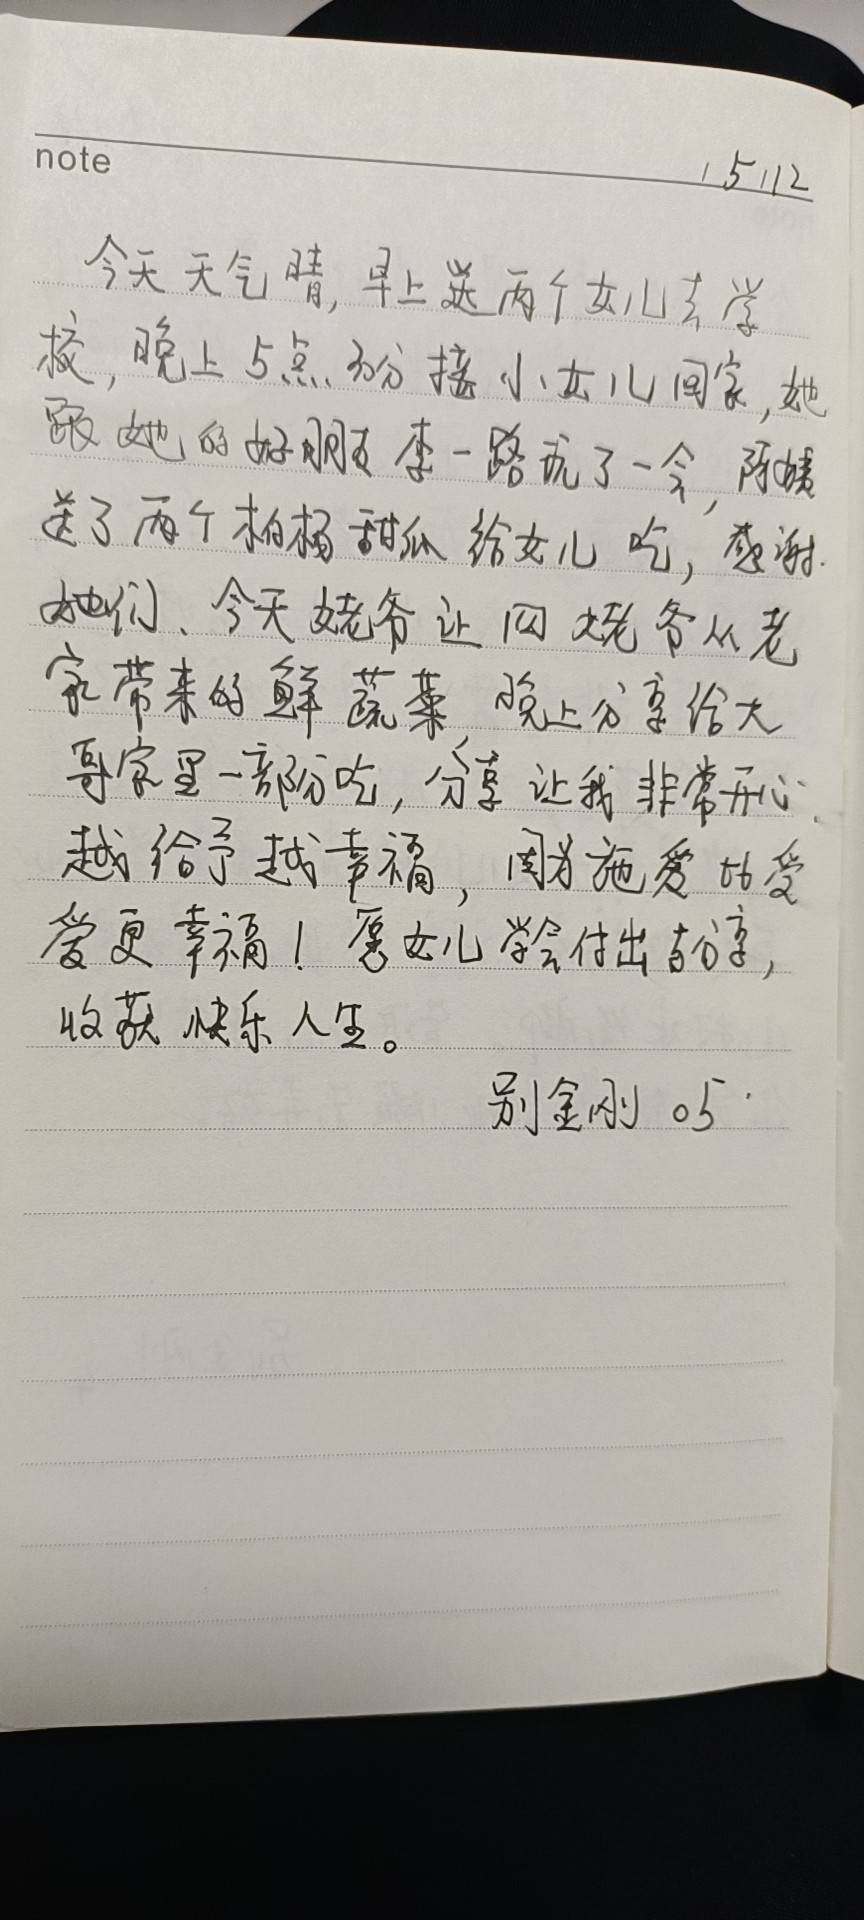 note
15112
今天天气晴,早上送两个女儿去学
校,晚上5点30分接小女儿回家,她
跟她的好朋友李一路玩了一会,阿姨
送了两个柏杨甜瓜给女儿吃,感谢
她们、今天姥爷让四姥爷从老
家带来的鲜蔬菜,晚上分享给大
哥家里一部份吃,分享让我非常开心.
越给予越幸福,因为施爱比受
爱更幸福!愿女儿学会付出与分享,
收获快乐人生。
别金刚 05